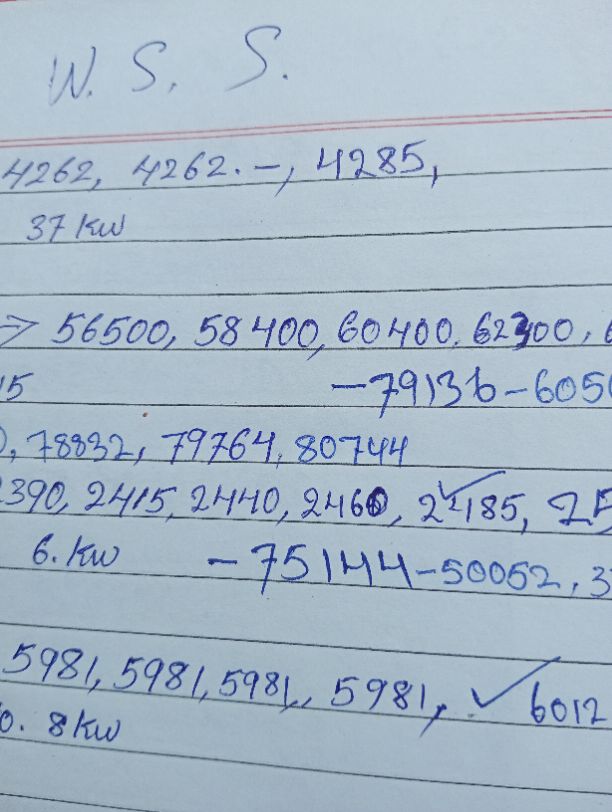 W. S. S.
4262, 4262. -, 4285,
37 kw
=> 56500, 58400, 60400, 62300,
15 -79136-605
, 78832, 79764, 80744
2390, 2415, 2440, 2460, 2485, 25
6. kw -75144-50052, 3
5981, 5981, 5981, 5981, ✓ 6012
0. 8 kw